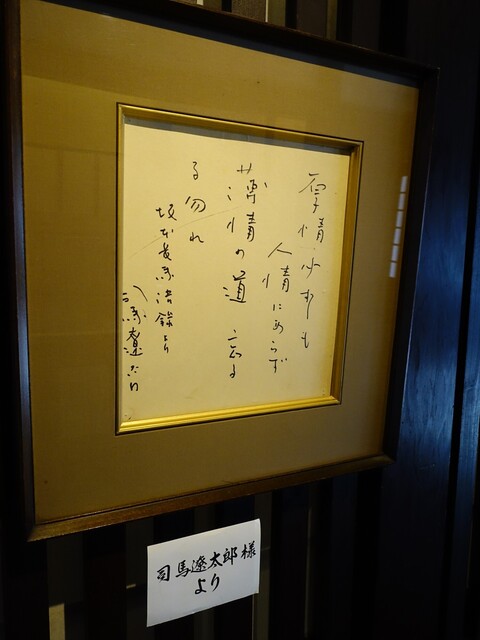 厚情必ずしも
人情にあらず
薄情の道 忘る
る勿れ
坂本竜馬語録より
司馬遼太郎
司馬遼太郎様
より